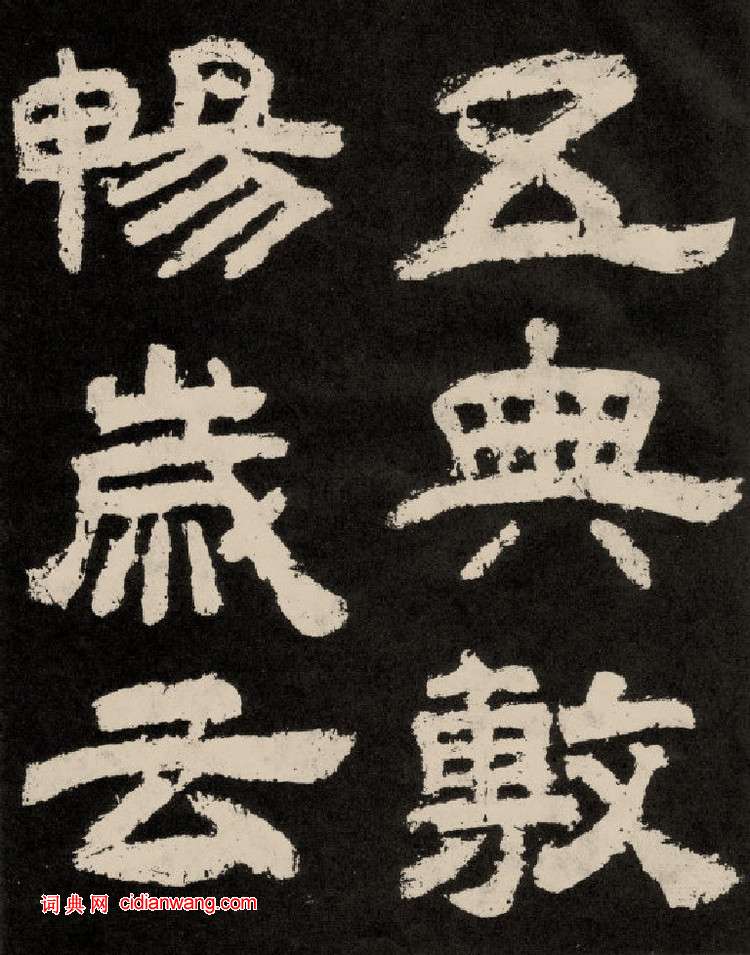 五典敷
暢歲云
词典网 cidianwang.com